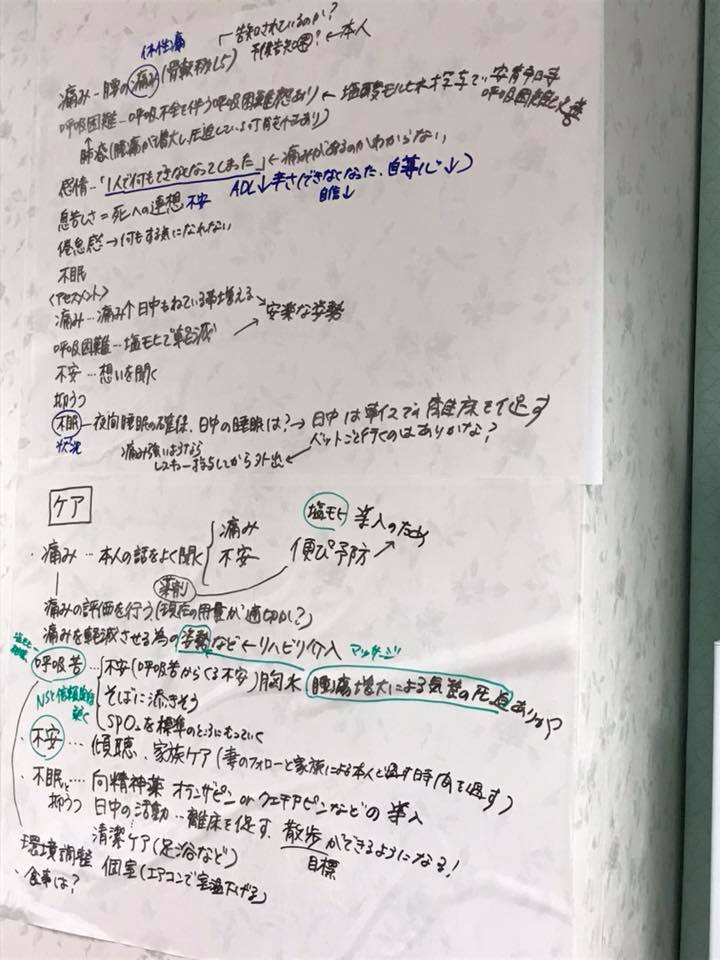 体性痛
←告知されているのか?
予後告知は? ← 本人
痛み - 腰の痛み(骨転移しら)
呼吸困難 - 呼吸不全を伴う呼吸困難感あり ← 塩酸モルヒネ投与で、安静時
呼吸困難
肺炎(腫瘍が増大し圧迫している可能性あり)
感情 -「1人で何もできなくなってしまった」← 痛みがあるのかわからない
息苦しさ = 死への連想 不安 ADL↓辛さ(できなくなった、自尊心↓)
自信↓
倦怠感 → 何もする気になれない
不眠
〈アセスメント〉
痛み … 痛み↑日中もねている事増える
安楽な姿勢
呼吸困難 … 塩モヒで軽減
不安 … 想いを聞く
抑うつ
不眠 - 夜間睡眠の確保、日中の睡眠は? → 日中は車イスでの離床を促す
状況
ベットごと行くのはありかな?
痛み強いようなら
レスキュー投与してから外出
ケア
塩モヒ 導入のため
・痛み … 本人の話をよく聞く 痛み 不安
便ぴ予防
薬剤
痛みの評価を行う(現在の用量が適切か?)
痛みを軽減させる為の姿勢など←リハビリ介入 マッサージ
呼吸苦 … 不安(呼吸苦からくる不安) 胸水 腫瘍増大による気道の圧迫ありか?
NSと信頼関係築く
そばに添きそう
SPO₂を標準のところにもっていく
・不安 … 傾聴、家族ケア(妻のフォローと家族による本人と過す時間を促す)
・不眠と 抑うつ … 向精神薬 オランザピン or クエチアピンなどの導入
日中の活動 … 離床を促す、散歩ができるようになる!
目標
清潔ケア(足浴など)
環境調整 個室(エアコンで室温下げる)
・食事は?